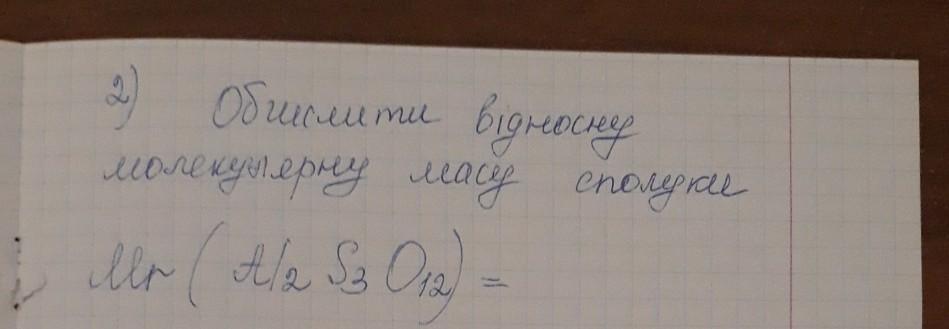 2) Обчислити відносну
молекулярну масу сполуки
Mr ( Al2 S3 O12) =